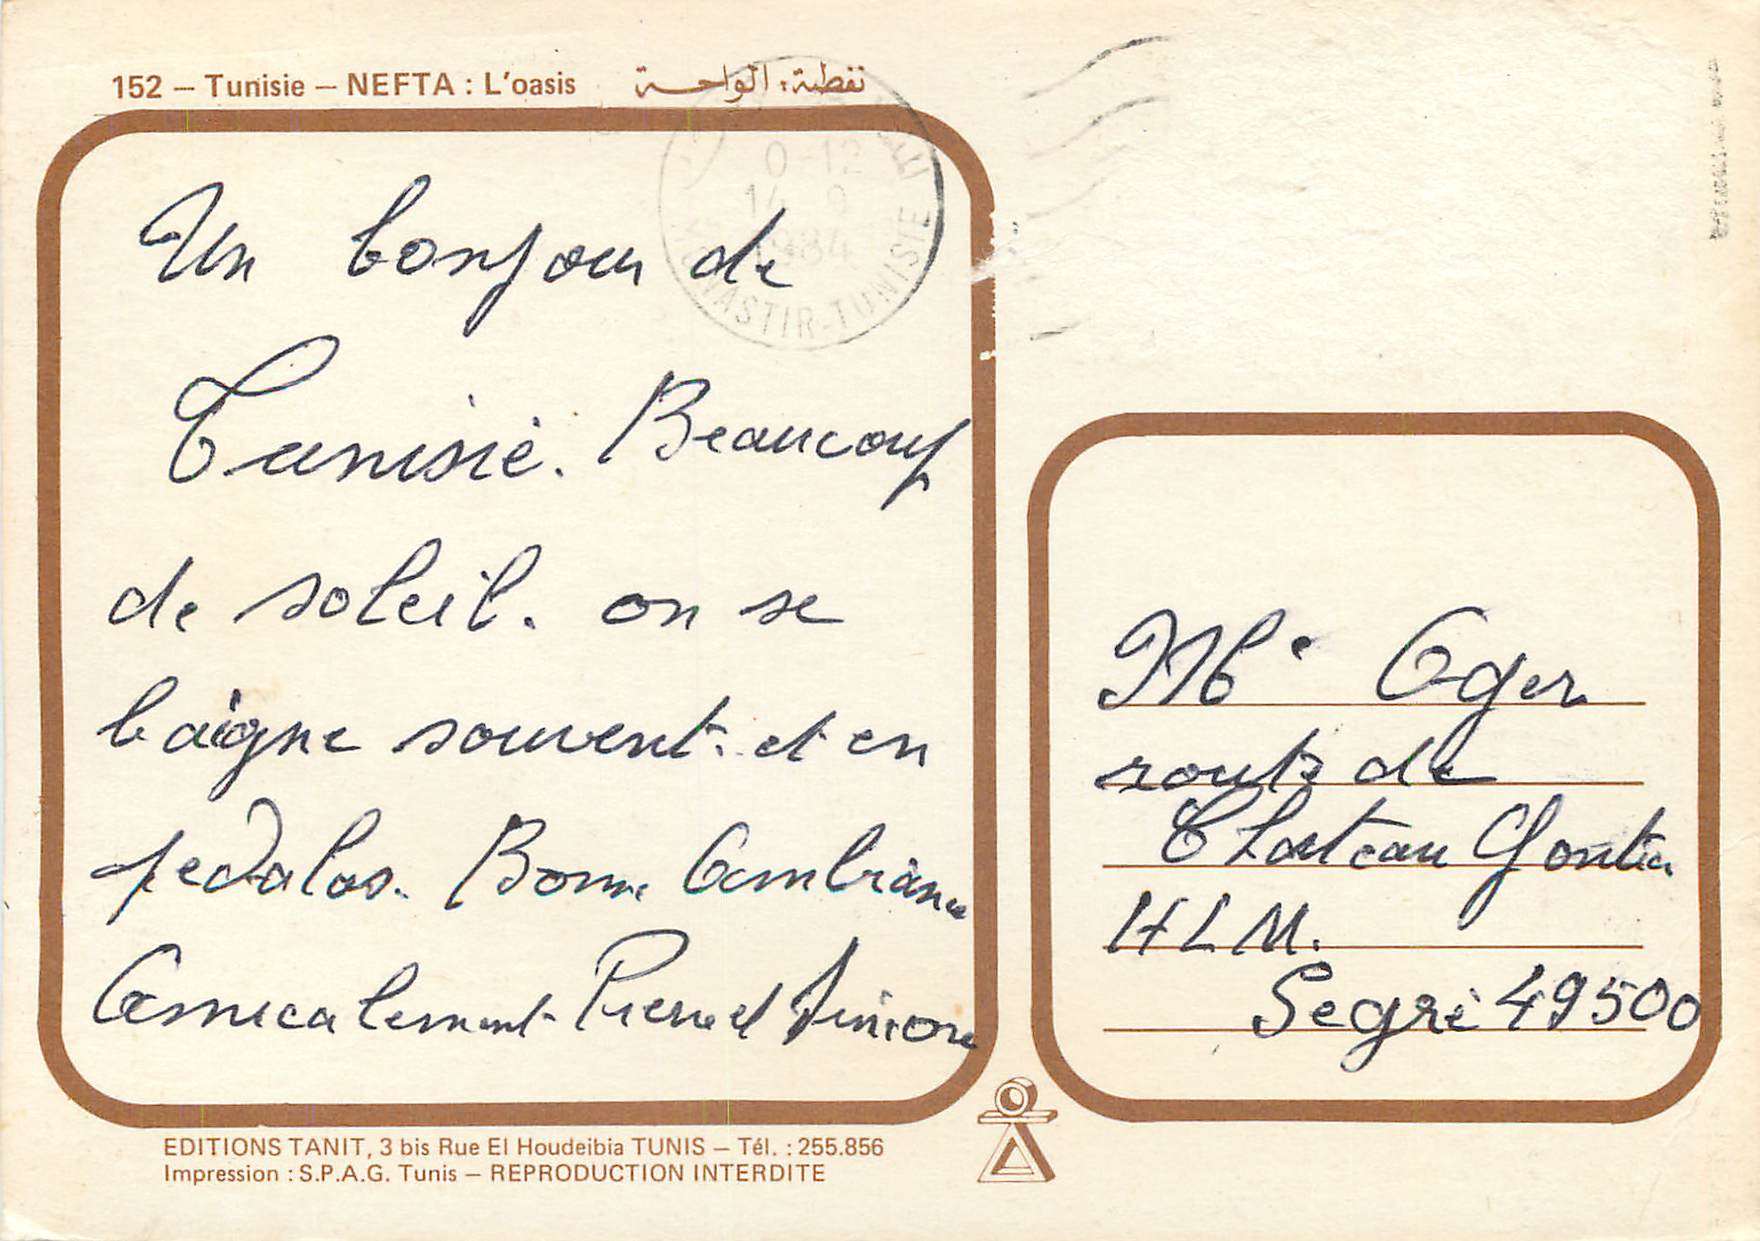 152 – Tunisie – NEFTA : L'oasis نفطة: الواحة
0-12
14 9
1984
MONASTIR-TUNISIE
Un bonjour de
Tunisie. Beaucoup
de soleil. on se
baigne souvent. et en
pedalos. Bonne Ambiance
Amicalement Pierre et Simone
Mle Oger
route de
Chateau Gontier
HLM.
Segré 49500
EDITIONS TANIT, 3 bis Rue El Houdeibia TUNIS – Tél. : 255.856
Impression : S.P.A.G. Tunis – REPRODUCTION INTERDITE